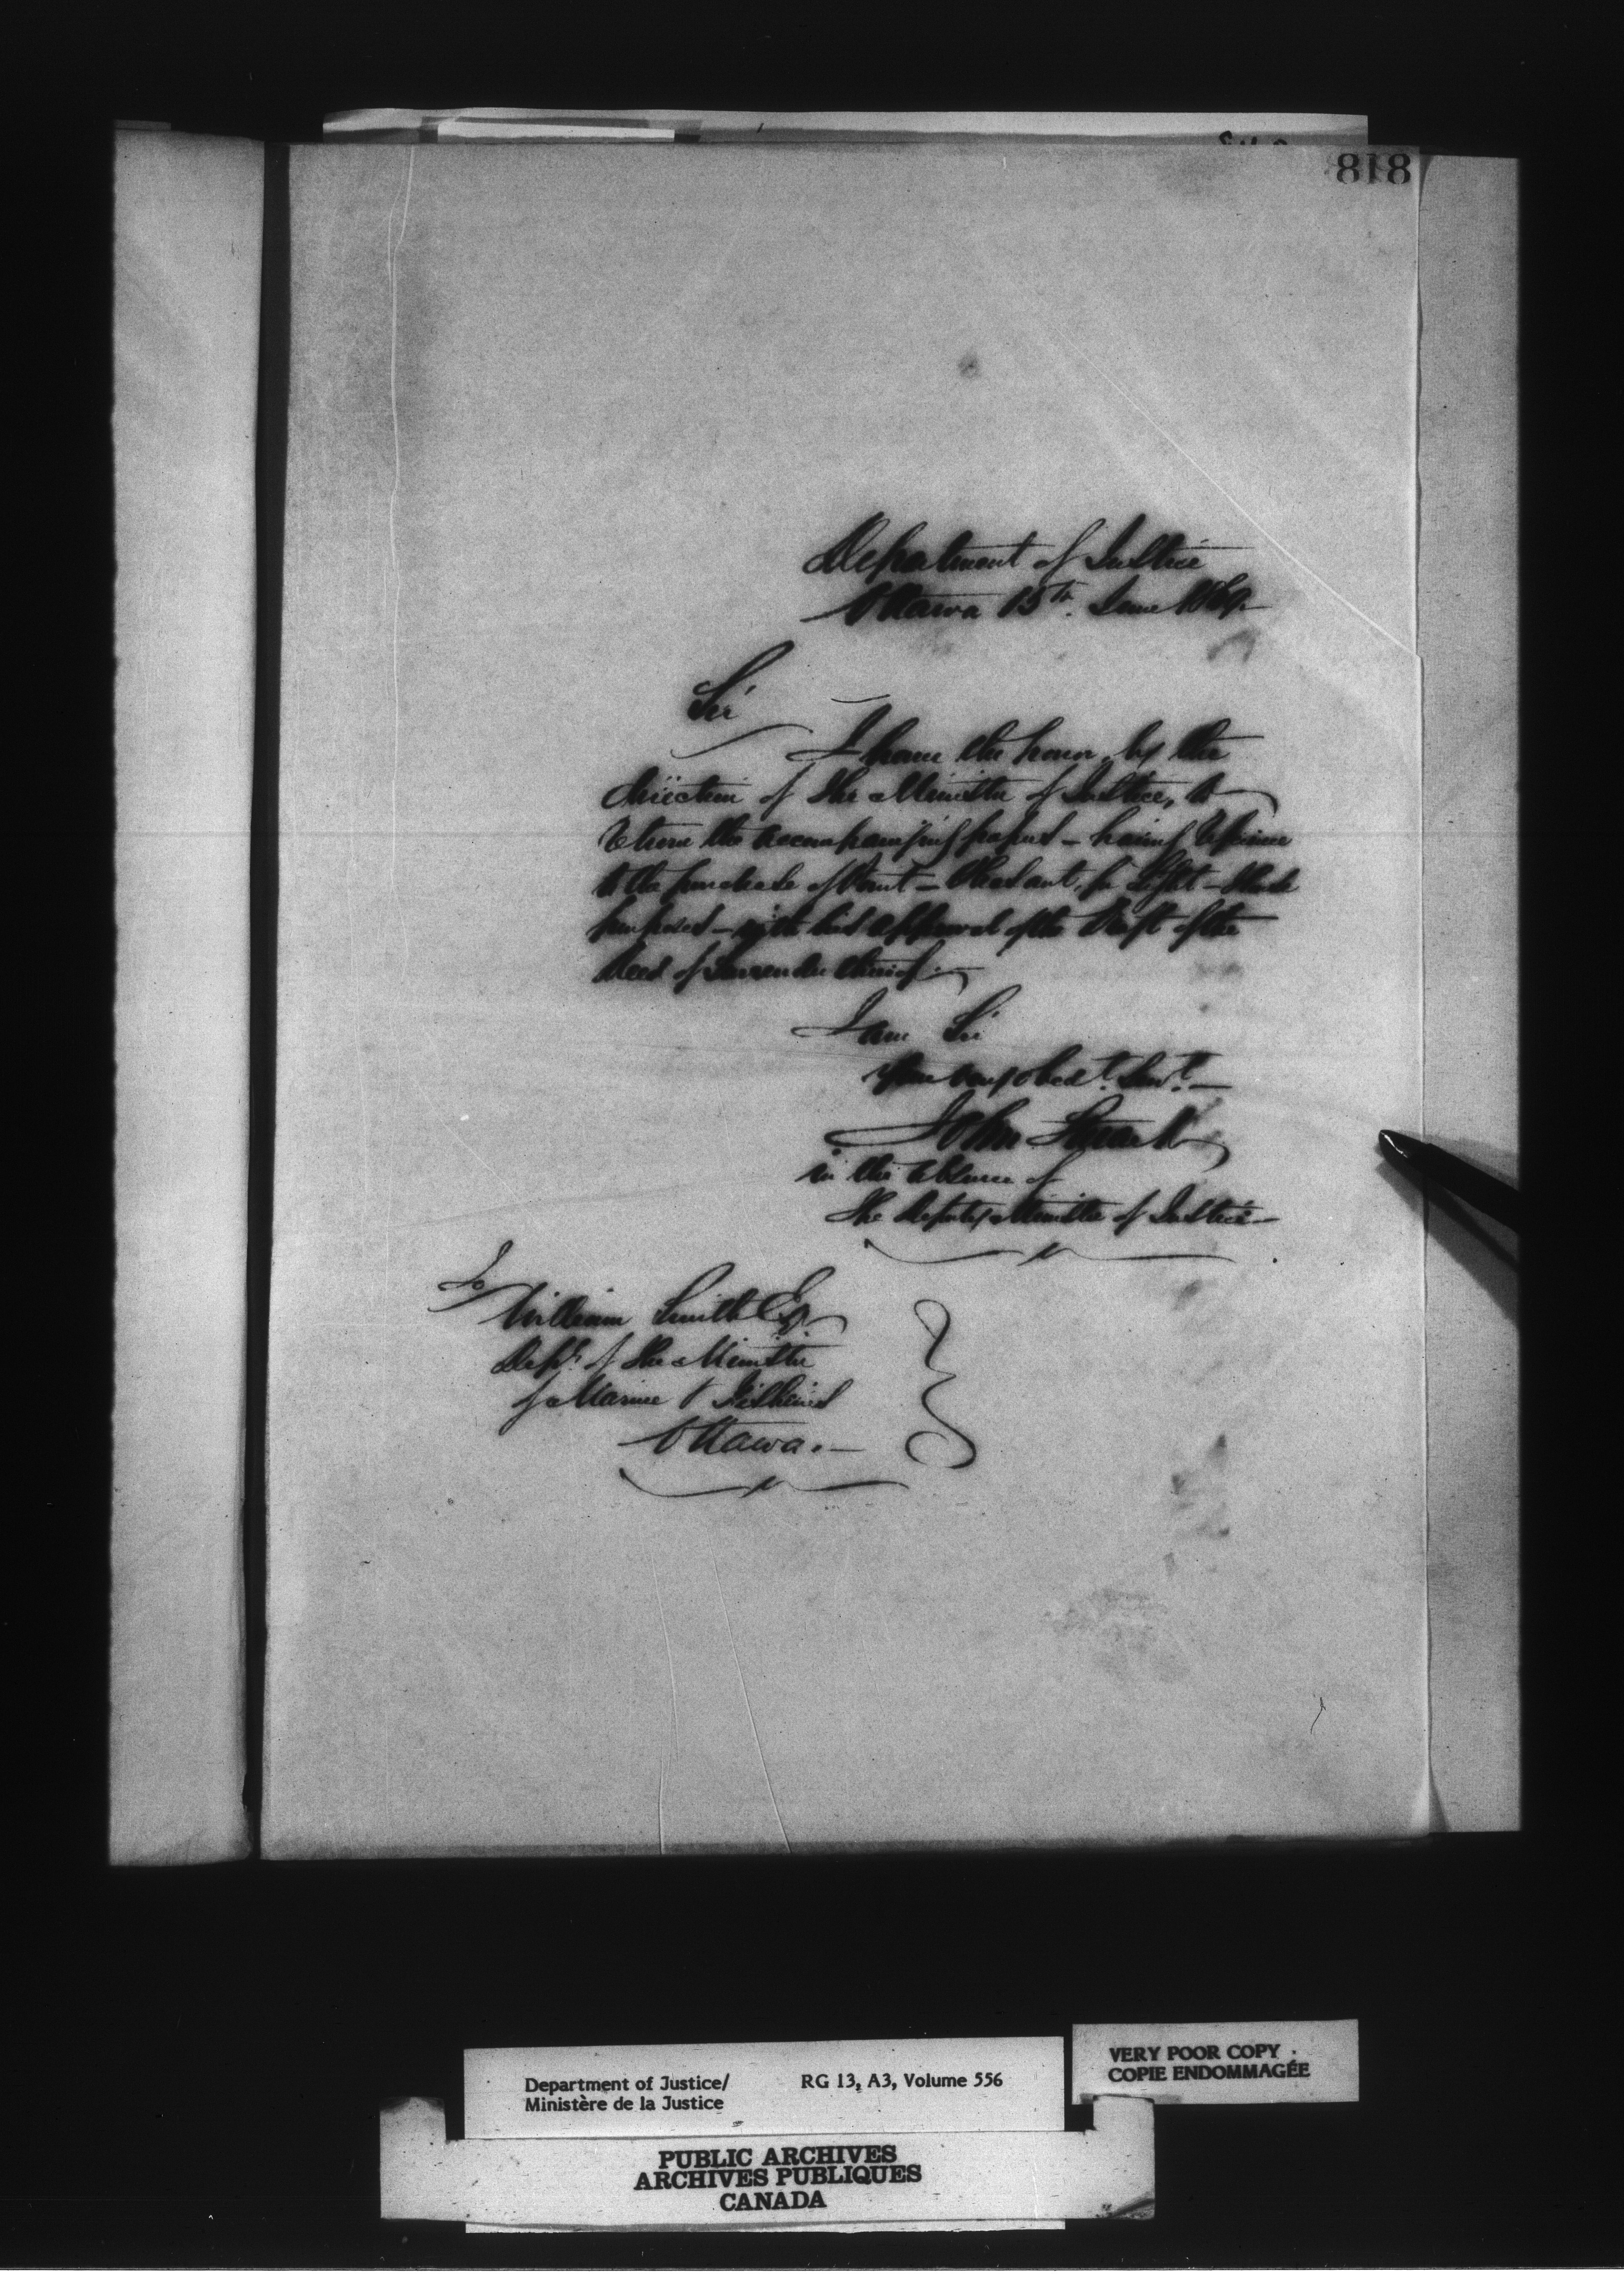 818
Department of Justice
Ottawa 15th. June 1869
Sir
I have the honor, by the
direction of the Minister of Justice, to
return the accompanying papers - having reference
to the purchase of Point - Pleasant, for Light - House
purposes - with his approval of the Draft of the
Deed of Surrender thereof. -
I am Sir
Your very obedt. Servt. -
John
in the absence of
The Deputy Minister of Justice -
To
William Smith Esq
Dept. of the Minister
of Marine & Fisheries
Ottawa. -
Department of Justice/ RG 13, A3, Volume 556
Ministère de la Justice
VERY POOR COPY
COPIE ENDOMMAGÉE
PUBLIC ARCHIVES
ARCHIVES PUBLIQUES
CANADA